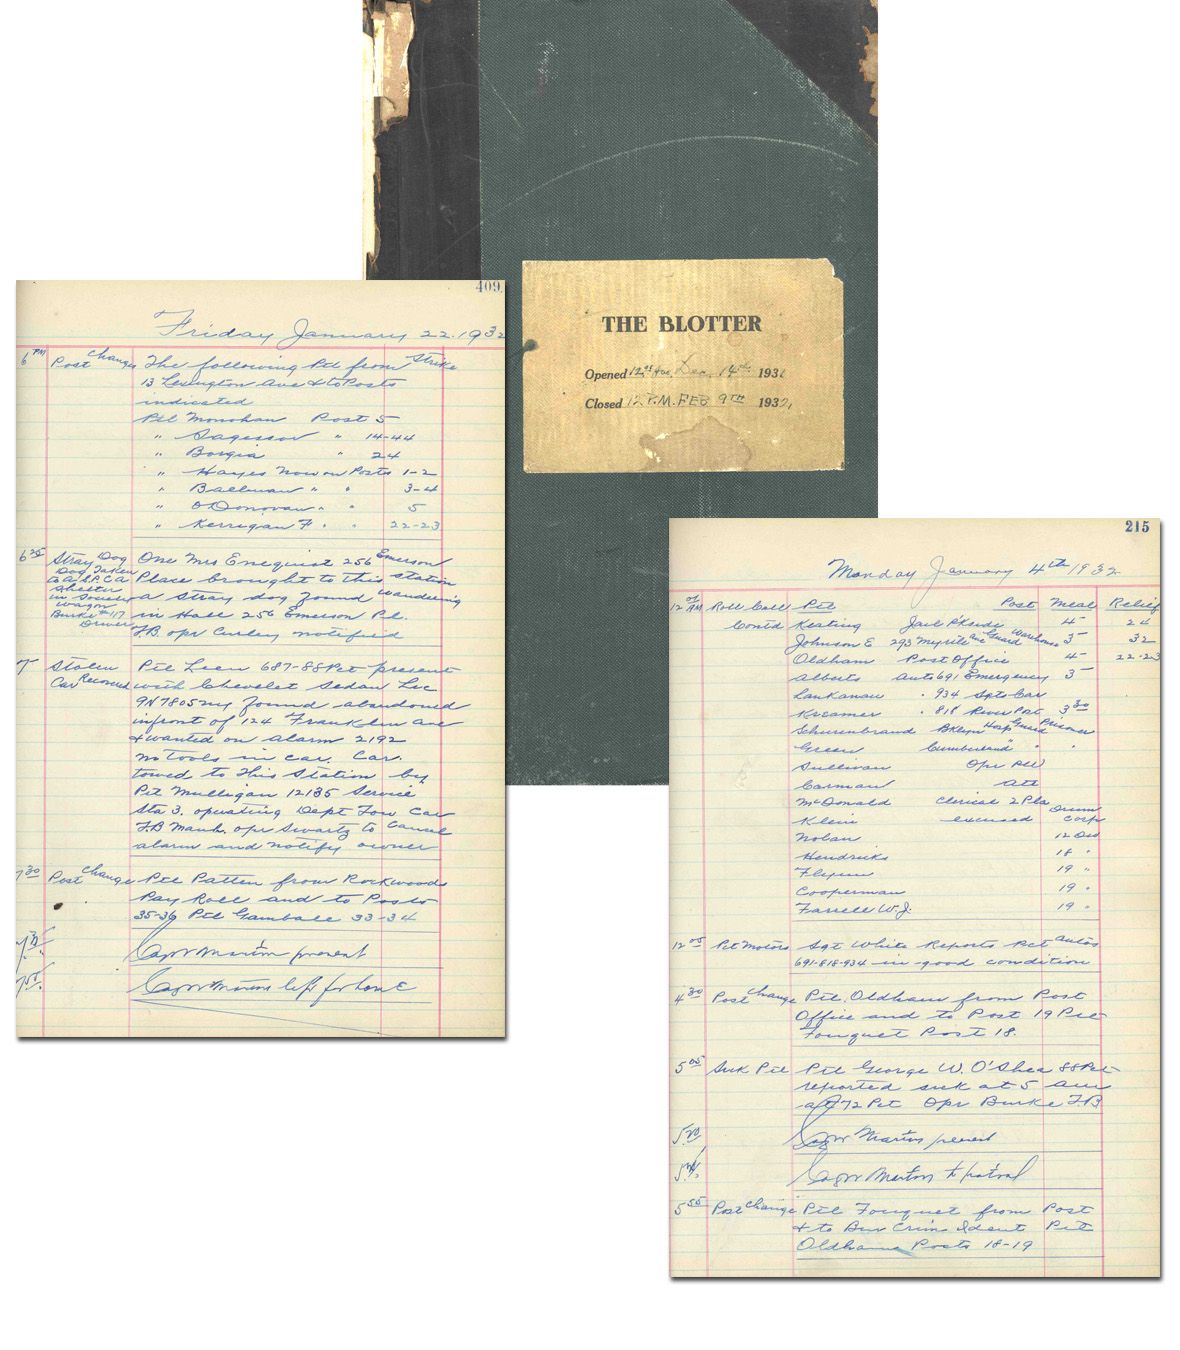 THE BLOTTER
Opened 12 Dec. 14th 1931
Closed 12 P.M. FEB 9TH 1932
409
Friday January 22. 1932
6 PM Post Change The following Ptl from Strike
13 Lexington Ave & to Posts
indicated
Ptl Monohan Post 5
" " 14-44
" Borgia " 24
" Hayes Now on Posts 1-2
" " " 3-4
" O'Donovan " " 5
" Kerrigan F " " 22-23
6 25 Stray Dog One Mrs Enequist 256 Emerson
Dog Taken Place brought to this station
to A.S.P.C.A a stray dog found wandering
Shelter
in Society in Hall 256 Emerson Pl.
wagon
Burke #117 T.B. opr Curley notified
Driver
7 Stolen Ptl Leen 687-88 Pct present
Car Recovered with Chevelet Sedan Lic
9N7805 NY found abandoned
infront of 124 Franklin Ave
& wanted on alarm 2192
no tools in car. Car.
towed to this station by
Ptl Mulligan 12135 Service
Sta 3. operating Dept Tow Car
T.B Manh. opr Swartz to Cancel
alarm and notify owner
7 30 Post Change Ptl Patten from Rockwoods
Pay Roll and to Posts
35-36 Ptl Gambale 33-34
7 35 present
7 55 left for home
215
Monday January 4th 1932
12 01 AM Roll Call Ptl Post Meal Relief
Contd Keating Jail P'k side 4 24
Johnson E 293 Myrtle Ave Guard Warehouse 3 32
Oldham Post Office 4 22-23
Alberts Auto 691 Emergency 3
Lankanau " 934 Sgts Car
Kreamer " 818 River Post 3 30
Schurenbrand Bklyn Hosp Guard Prisoner
Green Cumberland " "
Sullivan Opr Ptl
Carman Att
McDonald Clerical 2 Pla
Klein excused Drum Corp
Nolan 12 Dis
Hendricks 18 "
Flynn 19 "
Cooperman 19 "
Farrell W.J. 19 "
12 05 Pct Motors Sgt White Reports Pct autos
691-818-934 in good condition
4 30 Post Change Ptl. Oldham from Post
Office and to Post 19 Ptl
Fouquet Post 18.
5 05 Sick Ptl Ptl George W. O'Shea 88 Pct
reported sick at 5 am
at 72 Pct Opr Burke T.B
5 20 present
to patrol
5 55 Post Change Ptl Fouquet from Post
& to Bur Crim Ident Ptl
Oldham Posts 18-19